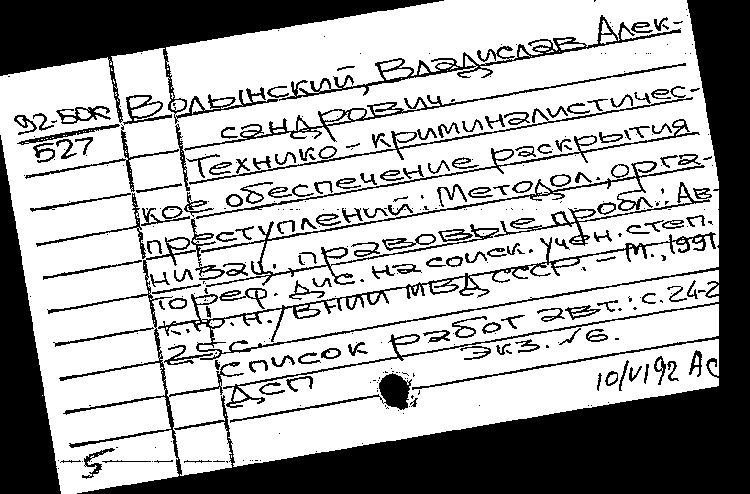 92-БОК
527
Волынский, Владислав Алек-
сандрович.
Технико-криминалистичес-
кое обеспечение раскрытия
преступлений: Методол., орга-
низац., правовые пробл.: Ав-
тореф. дис. на соиск. учен. степ.
к.ю.н. / ВНИИ МВД СССР. – М., 1991.
25 с.
список работ авт.: с. 24-2
ДСП Экз. №6.
10/VI92 АС
5